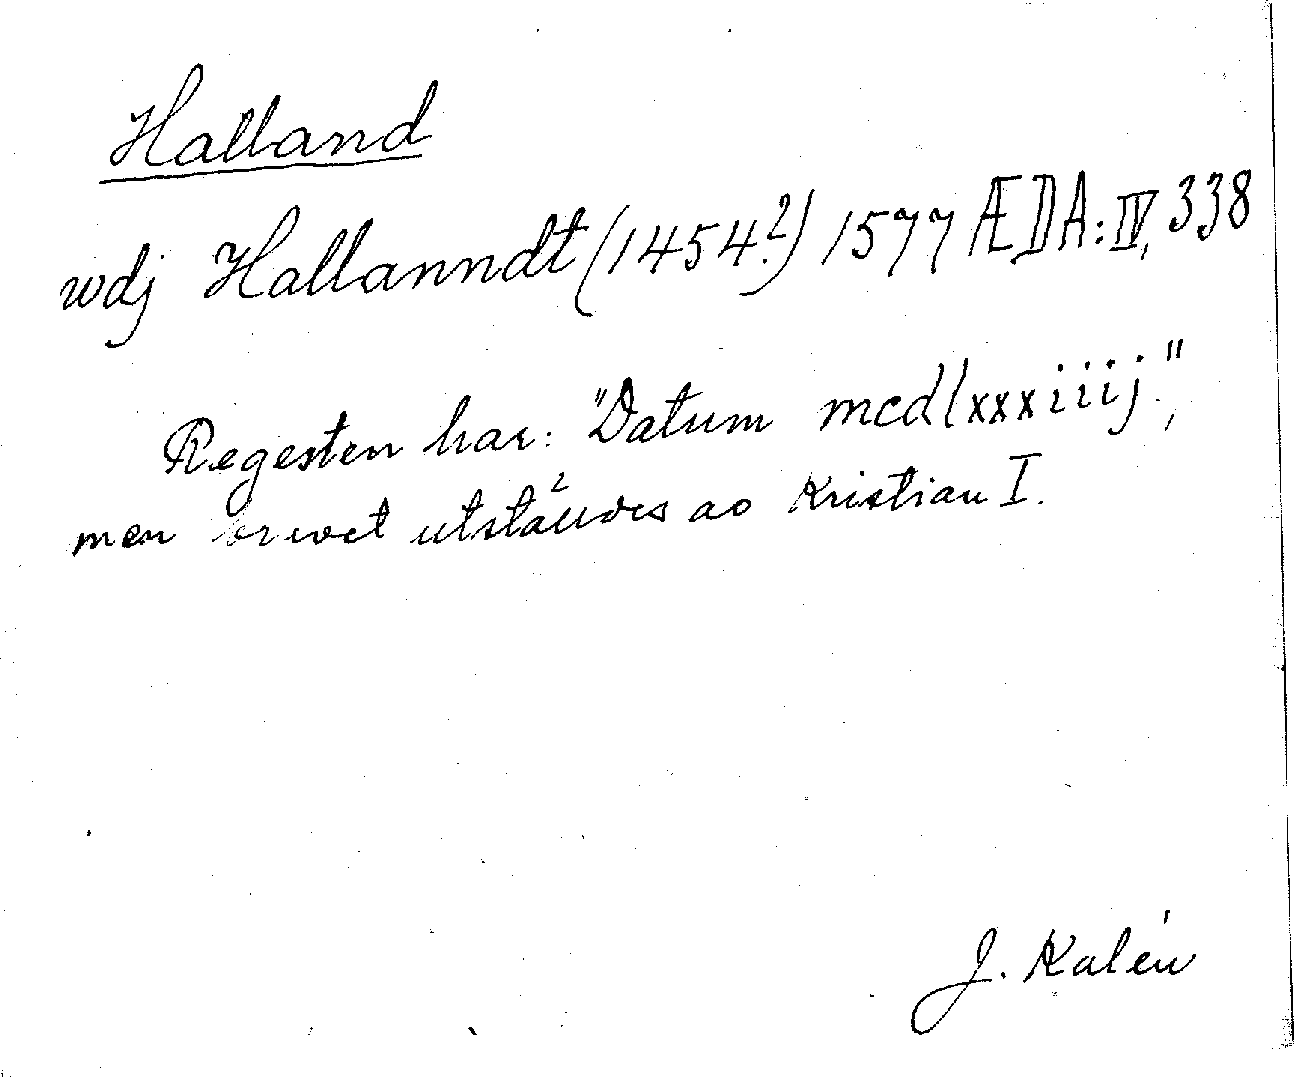 Halland
wdj Hallanndt (1454?) 1577 ÆDA: IV, 338
Regesten har: "Datum mcdlxxxiiij.",
men brevet utställdes av Kristian I.
J. Kalén